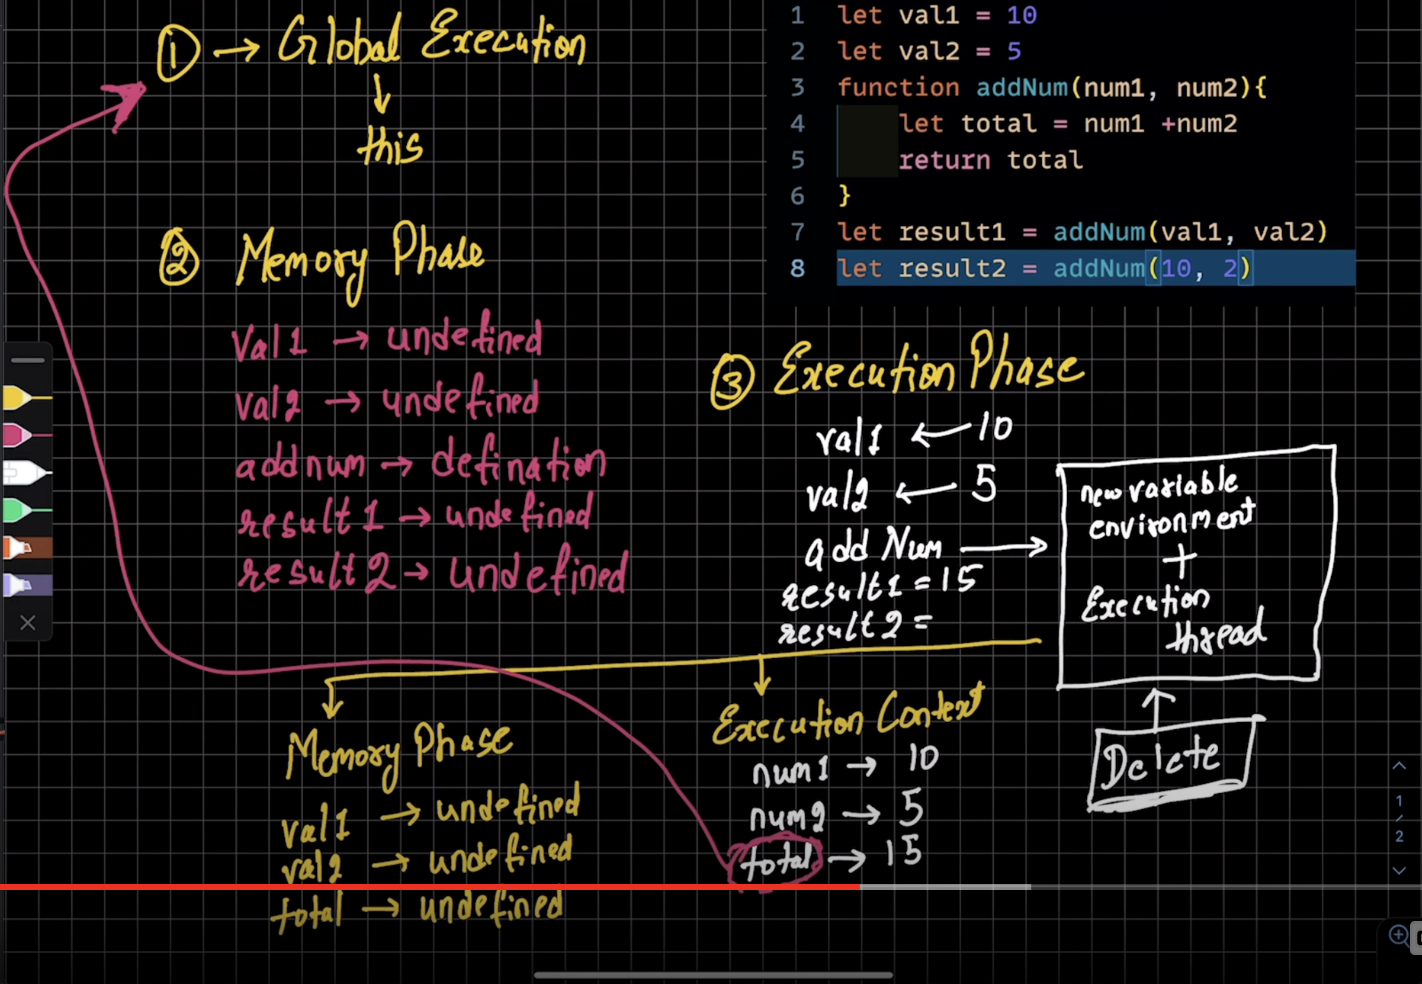 ① → Global Execution
↓
this
② Memory Phase
Val1 → undefined
val2 → undefined
addnum → defination
result1 → undefined
result2 → undefined
1 let val1 = 10
2 let val2 = 5
3 function addNum(num1, num2){
4 let total = num1 +num2
5 return total
6 }
7 let result1 = addNum(val1, val2)
8 let result2 = addNum(10, 2)
③ Execution Phase
val1 ← 10
val2 ← 5
add Num →
result1 = 15
result2 =
new variable
environment
+
Execution
thread
Delete
Memory Phase
val1 → undefined
val2 → undefined
total → undefined
Execution Context
num1 → 10
num2 → 5
total → 15
1
/
2